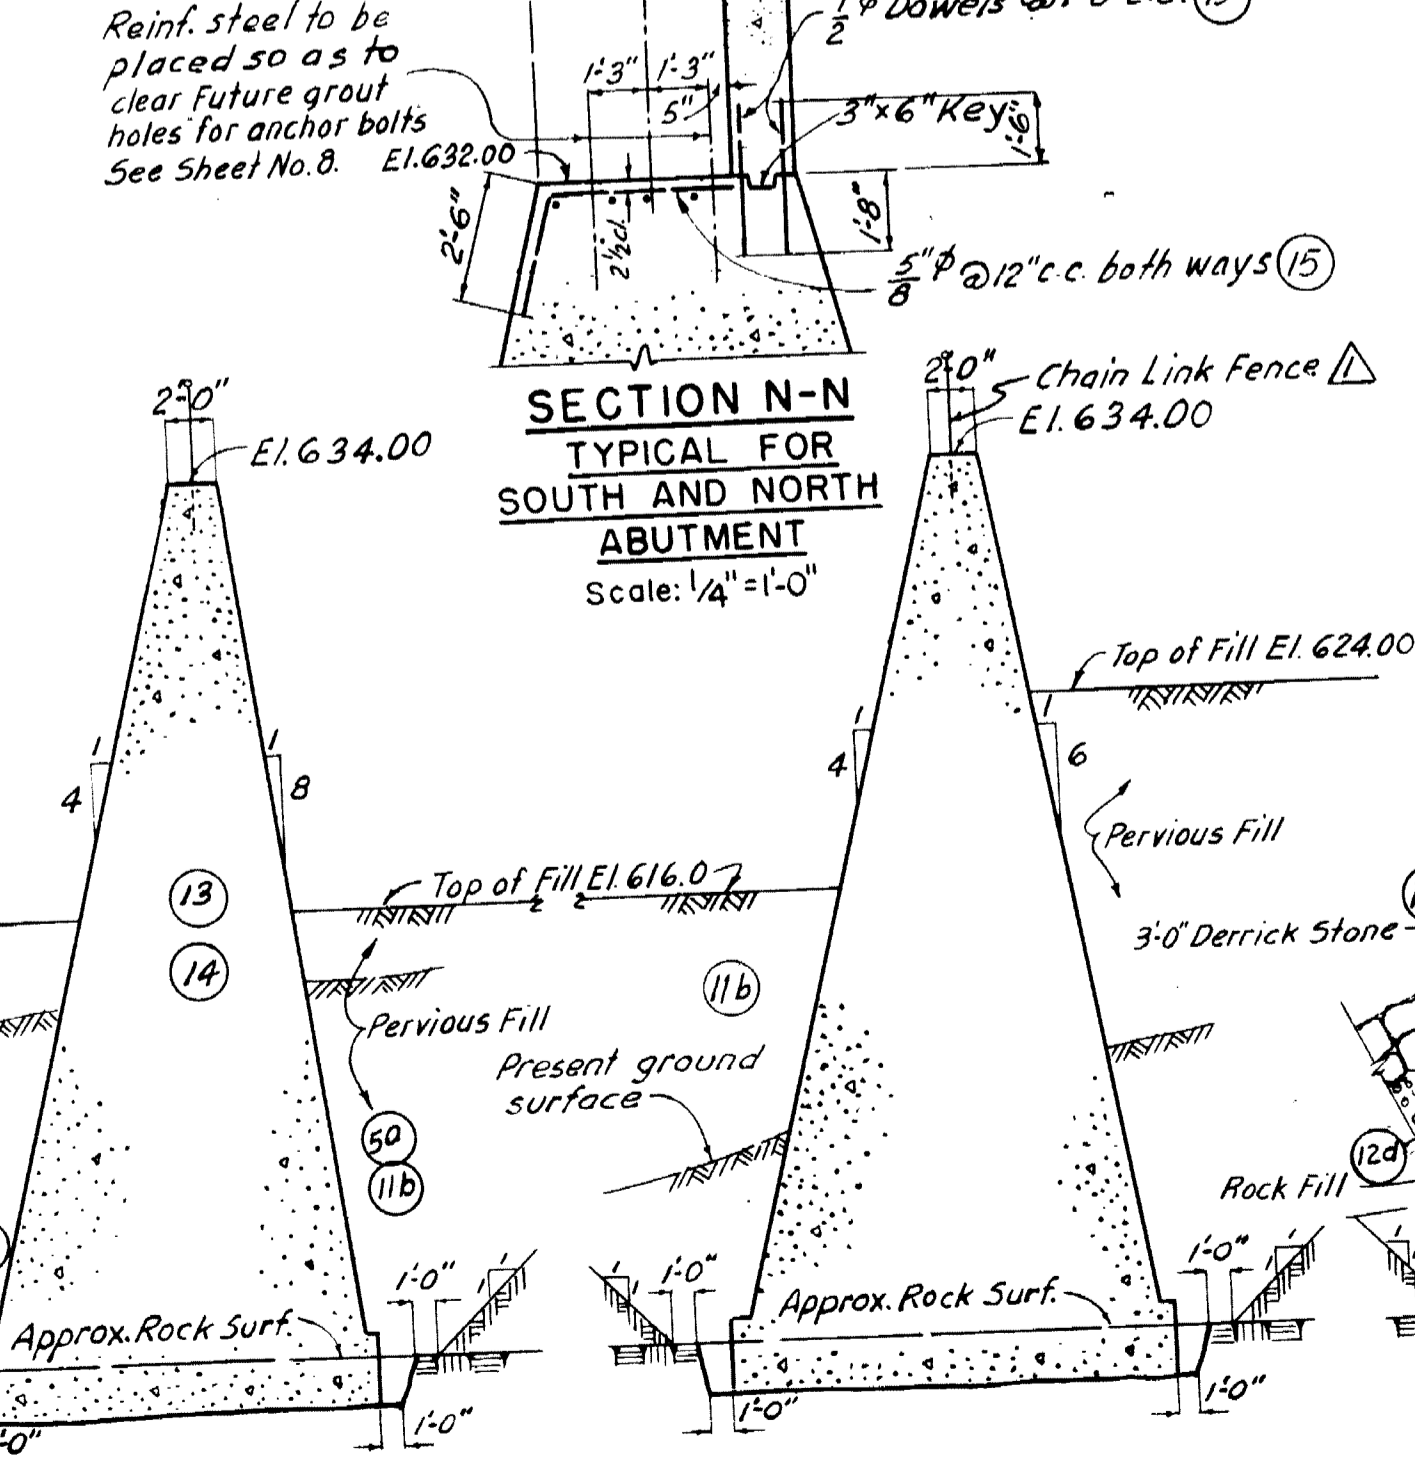 Reinf. steel to be
placed so as to
clear Future grout
holes for anchor bolts
See Sheet No. 8.
El. 632.00
1'-3" 1'-3"
5"
1/2"φ Dowels
3"x6" Key
1'-6"
2'-6"
2½"cl.
1'-8"
5/8"φ @ 12" c.c. both ways 15
SECTION N-N
TYPICAL FOR
SOUTH AND NORTH
ABUTMENT
Scale: 1/4"=1'-0"
2'-0"
El. 634.00
1
4
1
8
13
14
Top of Fill El. 616.0
Pervious Fill
5a
11b
1'-0"
1
1
Approx. Rock Surf.
1'-0"
2'-0"
Chain Link Fence 1
El. 634.00
Top of Fill El. 624.00
1
4
1
6
Pervious Fill
3'-0" Derrick Stone
11b
Present ground
surface
12d
Rock Fill
1
1
1'-0"
Approx. Rock Surf.
1'-0"
1
1
1'-0"
1'-0"